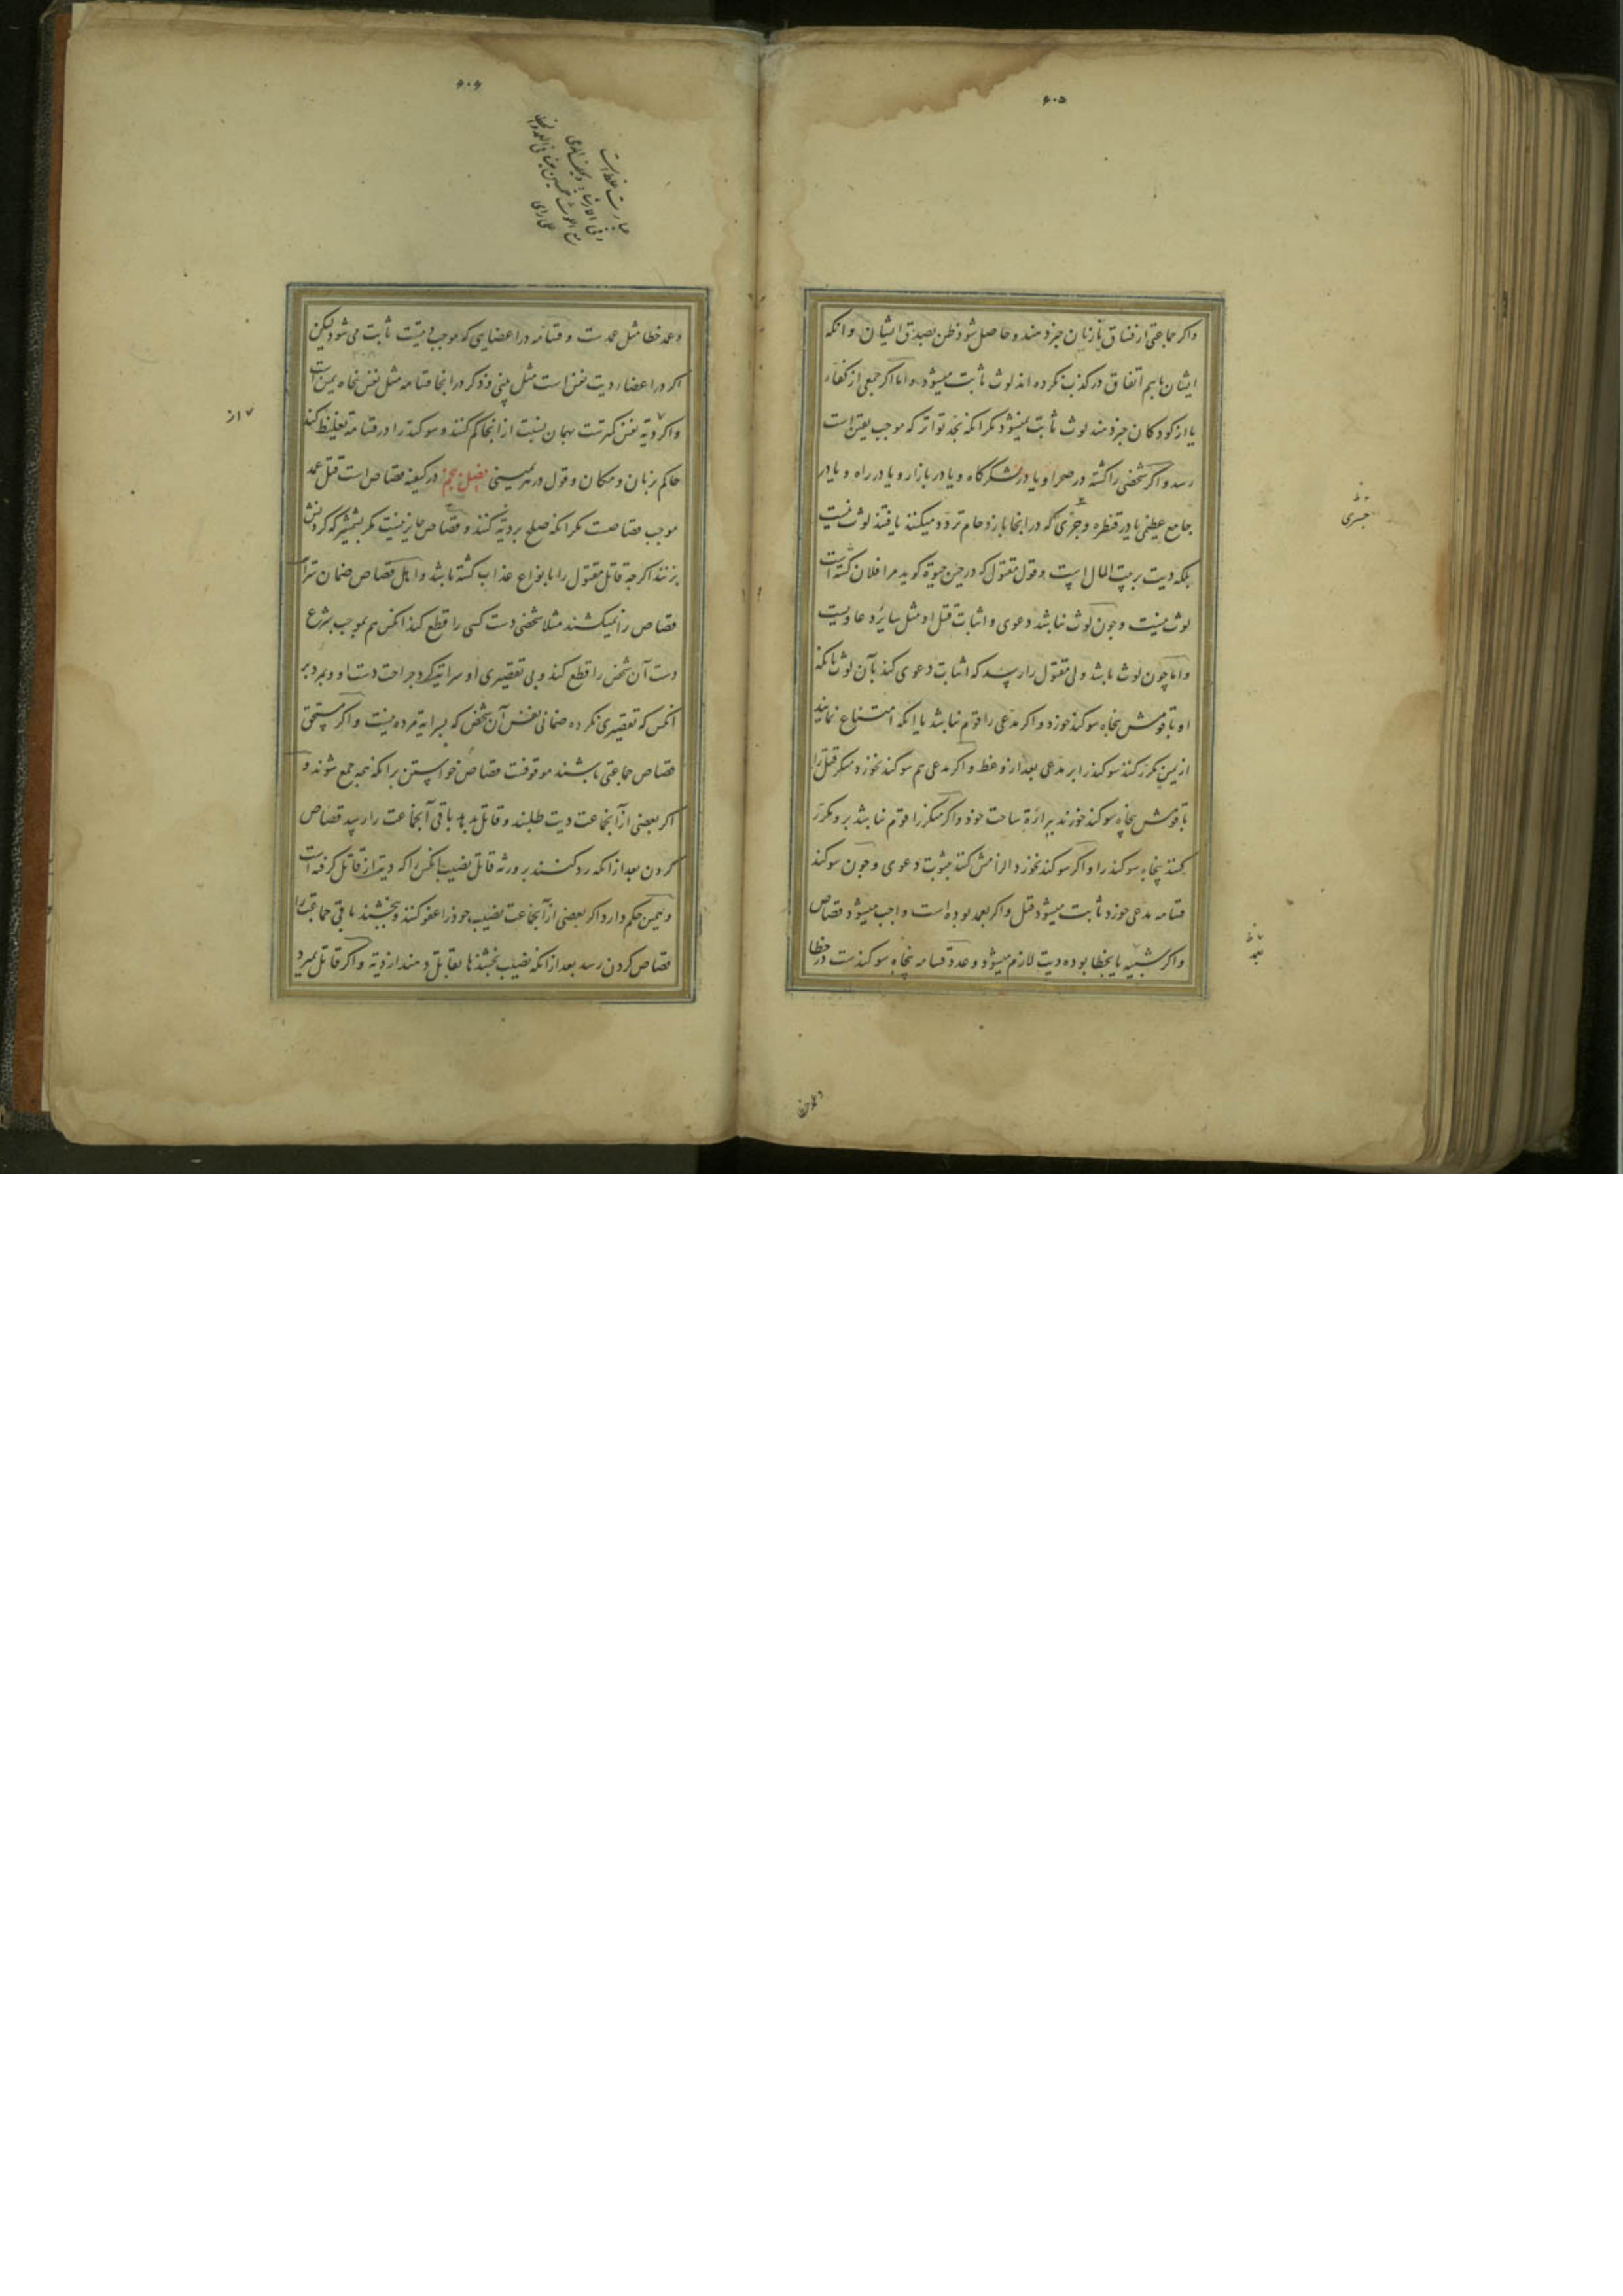 ۶۰۵
واکر جماعتی از فساق یا زنان خبر دهند و حاصل شود ظن بصدق ایشان و انکه
ایشان باهم اتفاق در کذب نکرده اند لوث ثابت میشود و اما اکر جمعی از کفار
یا از کودکان خبر دهند لوث ثابت نمیشود مکر انکه بحد تواتر که موجب یقین است
رسد و اکر شخصی را کشته در صحرا و یا در لشکرگاه و یا در بازار و یا در راه و یا در
جامع عظیمی یا در قنطره و جسری که در انجا بازدحام تردد میکنند یافتند لوث نیست
بلکه دیت بر بیت المال است و قول مقتول که در حین حیوة کوید مرا فلان کشته است
لوث نیست و چون لوث نباشد دعوی و اثبات قتل او مثل سایر دعاویست
و اما چون لوث باشد ولی مقتول را رسد که اثبات دعوی کند بآن لوث بانکه
او با قومش پنجاه سوکند خورد و اکر مدعی را قوم نباشد یا انکه امتناع نمایند
از یمین مکرر کنند سوکند را بر مدعی بعد از وعظ و اکر مدعی هم سوکند نخورد منکر قتل را
با قومش پنجاه سوکند خورند برائة ساحت خود و اکر منکر را قوم نباشد برو مکرر
کنند پنجاه سوکند را و اکر سوکند نخورد الزامش کنند بثبوت دعوی و چون سوکند
قسامه مدعی خورد ثابت میشود قتل و اکر بعمد بوده است واجب میشود قصاص
و اکر شبیه یا بخطا بوده دیت لازم میشود و عدد قسامه پنجاه سوکندست در خطا
جسری
بعمد
۶۰۶
عبارت غلط است
و عمد خطا مثل عمدست و قسامه در اعضایی که موجب دیتست ثابت می شود لیکن
اکر در اعضاء دیت نفس است مثل بینی و ذکر در انجا قسامه مثل نفس پنجاه یمین است
و اکر دیة نفس کمترست بهمان نسبت از انجا کم کنند و سوکند را در قسامه تغلیظ کند
حاکم بزمان و مکان و قول در هر یمینی فصل پنجم در کیفیة قصاص است قتل عمد
موجب قصاصست مکر انکه صلح بر دیة کنند و قصاص جایز نیست مکر بشمشیر که کردنش
بزنند اکرچه قاتل مقتول را بانواع عذاب کشته باشد و اهل قصاص ضمان سرایت
قصاص را نمیکشند مثلا شخصی دست کسی را قطع کند انکس هم بموجب شرع
دست آن شخص را قطع کند و بی تقصیری او سرایت کرد جراحت دست او و بمرد بر
انکس که تقصیری نکرده ضمانی نفس آن شخص که بسرایة مرده نیست و اکر مستحق
قصاص جماعتی باشند موقوفست قصاص خواستن برانکه همه جمع شوند و
اکر بعضی از آنجماعت دیت طلبند و قاتل بدهد باقی آنجماعت را رسد قصاص
کردن بعد از انکه رد کنند بر ورثه قاتل نصیب انکس را که دیت از قاتل کرفته است
و همین حکم دارد اکر بعضی از آنجماعت نصیب خود را عفو کنند و بخشند باقی جماعت را
قصاص کردن رسد بعد از انکه نصیب بخشندها بقاتل دهند از دیة و اکر قاتل بمیرد
از